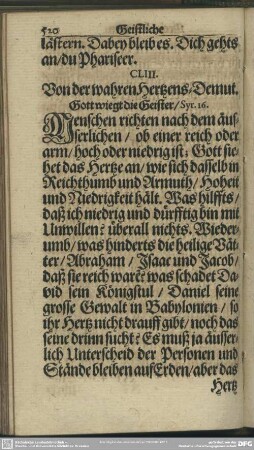 520 Geistliche
lästern. Dabey bleib es. Dich gehts
an/du Phariseer.
CLIII.
Von der wahren Hertzens/Demut.
Gott wiegt die Geister/Syr. 16.
Menschen richten nach dem äus-
serlichen/ ob einer reich oder
arm/hoch oder niedrig ist: Gott sie-
het das Hertze an/wie sich dasselb in
Reichthumb und Armuth/ Hoheit
und Niedrigkeit hält. Was hilffts/
daß ich niedrig und dürfftig bin mit
Unwillen? überall nichts. Wieder-
umb/was hinderts die heilige Vät-
ter/Abraham/ Isaac und Jacob/
daß sie reich warē? was schadet Da-
vid sein Königstul/ Daniel seine
grosse Gewalt in Babylonien/ so
ihr Hertz nicht drauff gibt/noch das
seine drinn sucht? Es muß ja äusser-
lich Unterscheid der Personen und
Stände bleiben auf Erden/aber das
Hertz